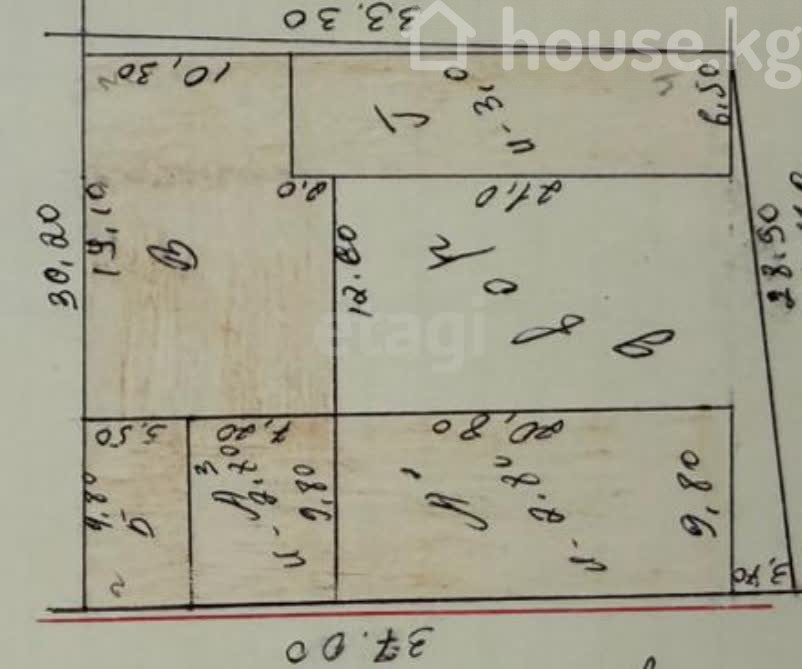 33.30
house.kg
10,30
Г
и-3,0
6,50
30,20
19,10
2,0
21,0
В
12.60
двор
28.90
etagi
5,50
7,20
20,80
9,80
Б
А³
и-2.70
9,80
А¹
и-2.80
9,80
3,70
37.00